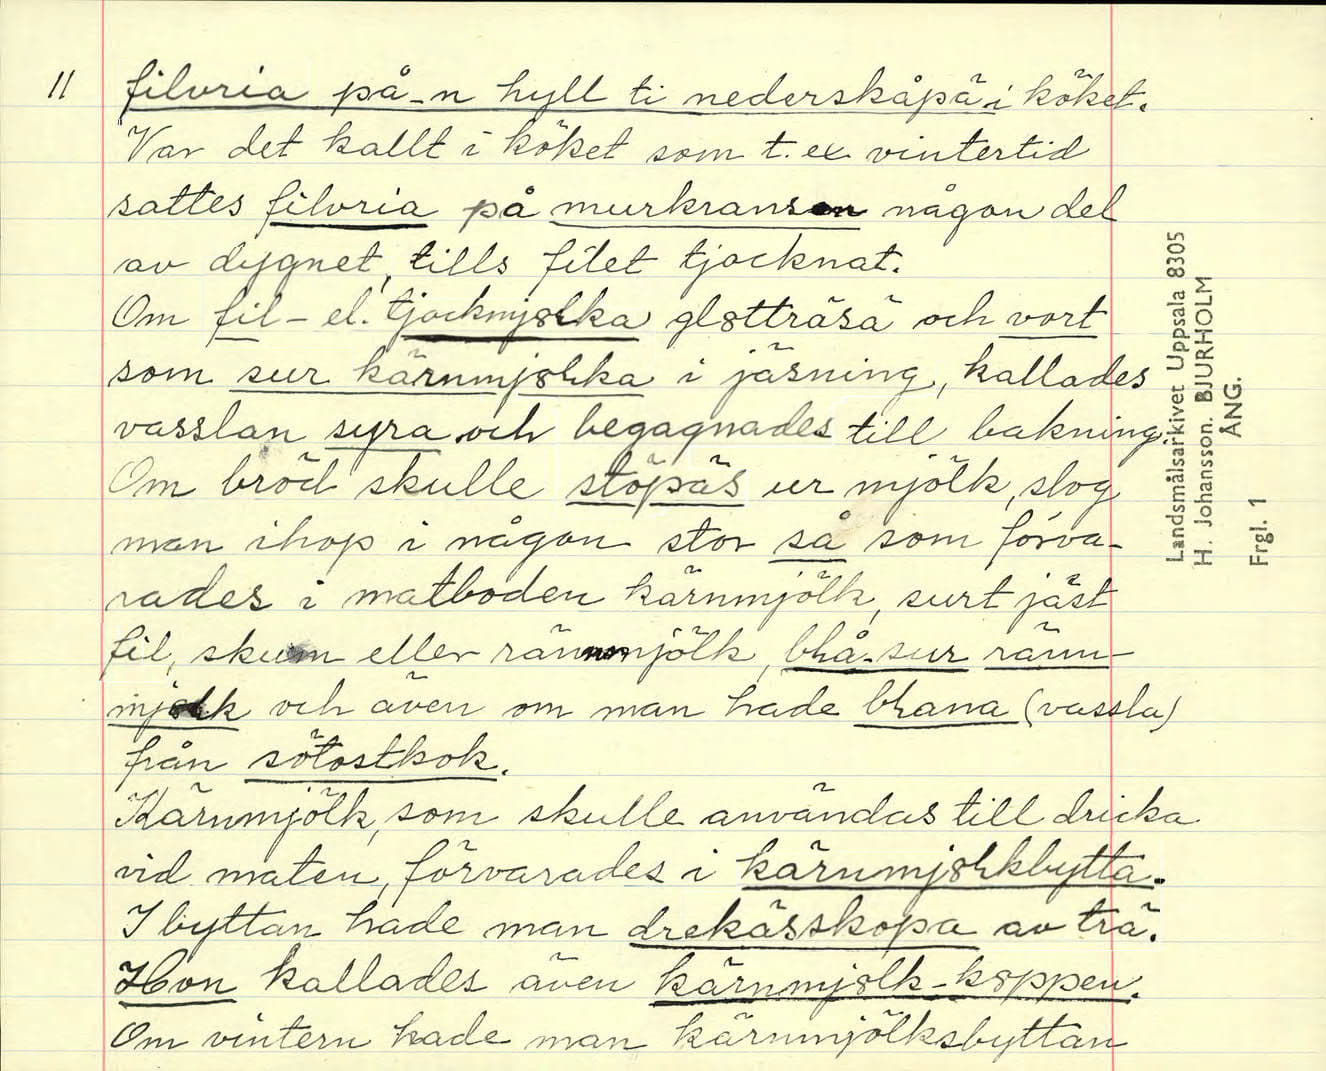 11
filvria på-n hyll ti nederskåpä i köket.
Var det kallt i köket som t. ex. vintertid
sattes filvria på murkransen någon del
av dygnet, tills filet tjocknat.
Om fil- el. tjockmjølka gløtträsä och vort
som sur kärnmjølka i jäsning, kallades
vasslan syra och begagnades till bakning.
Om bröd skulle stöpäs ur mjölk, slog
man ihop i någon stor så som förva-
rades i matboden kärnmjölk, surt jäst
fil, skum eller rännmjölk, blå-sur ränn-
mjølk och även om man hade blana (vassla)
från sötostkok.
Kärnmjölk, som skulle användas till dricka
vid maten, förvarades i kärnmjølkbytta.
I byttan hade man drekässkopa av trä.
Hon kallades även kärnmjølk-køppen.
Om vintern hade man kärnmjölksbyttan
Landsmålsarkivet Uppsala 8305
H. Johansson. BJURHOLM
ÅNG.
Frgl. 1